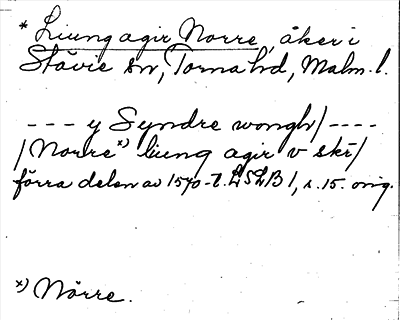 * Liung agir Norre, åker i
Stävie sn, Torna hd, Malm. l.
--- y Syndre wongh/ ----
/Norre x) liung agir v skr/
förra delen av 1570-t. LSLB 1, s. 15. orig.
x) Nörre.